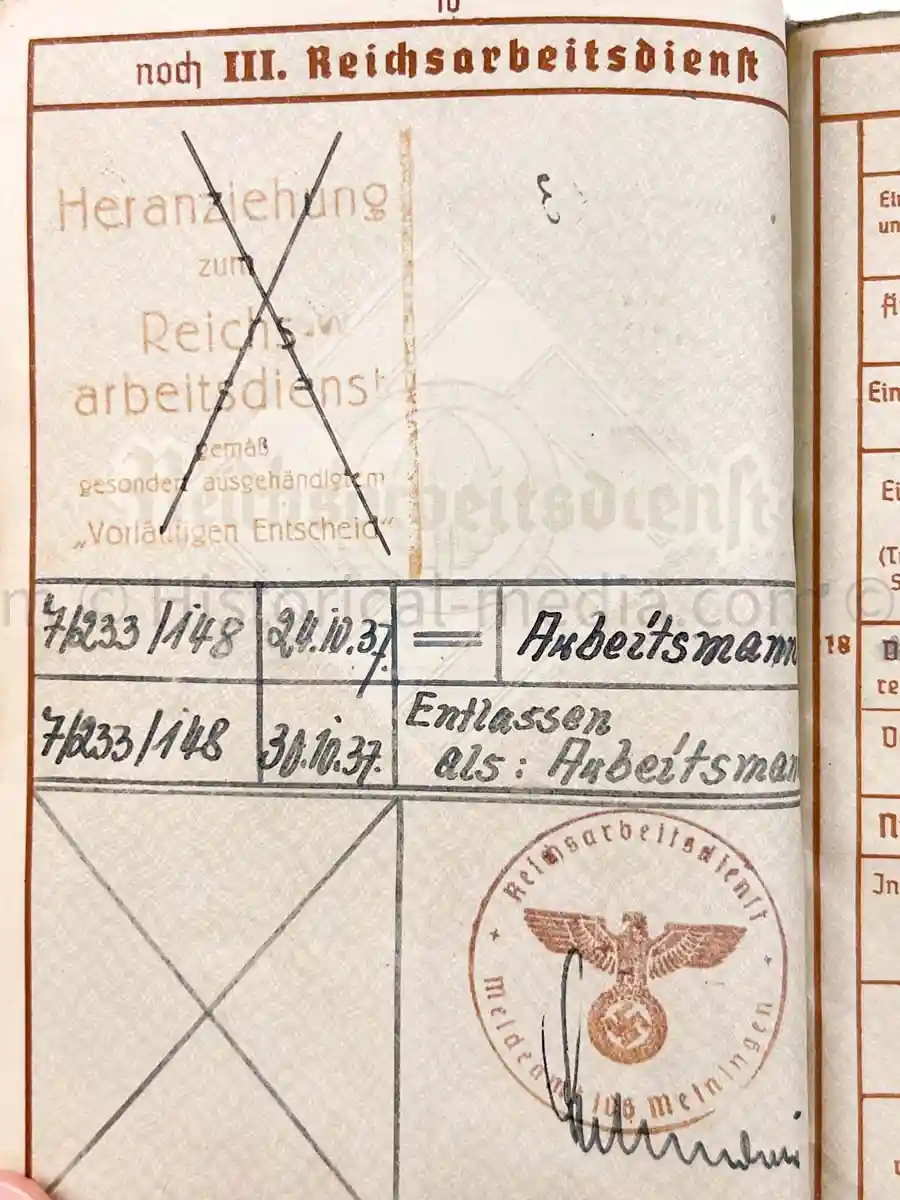 10
noch III. Reichsarbeitsdienst
Heranziehung
zum
Reichs-
arbeitsdienst
gemäß
gesondert ausgehändigtem
„Vorläufigen Entscheid“
Reichsarbeitsdienst
© Historical-media.com ©
7/233/148 24.10.37. = Arbeitsmann
7/233/148 30.10.37. Entlassen
als: Arbeitsman
Reichsarbeitsdienst
Meldeamt Meiningen
Ein
un
Ein
Ei
(T
S
18 D
re
D
N
In